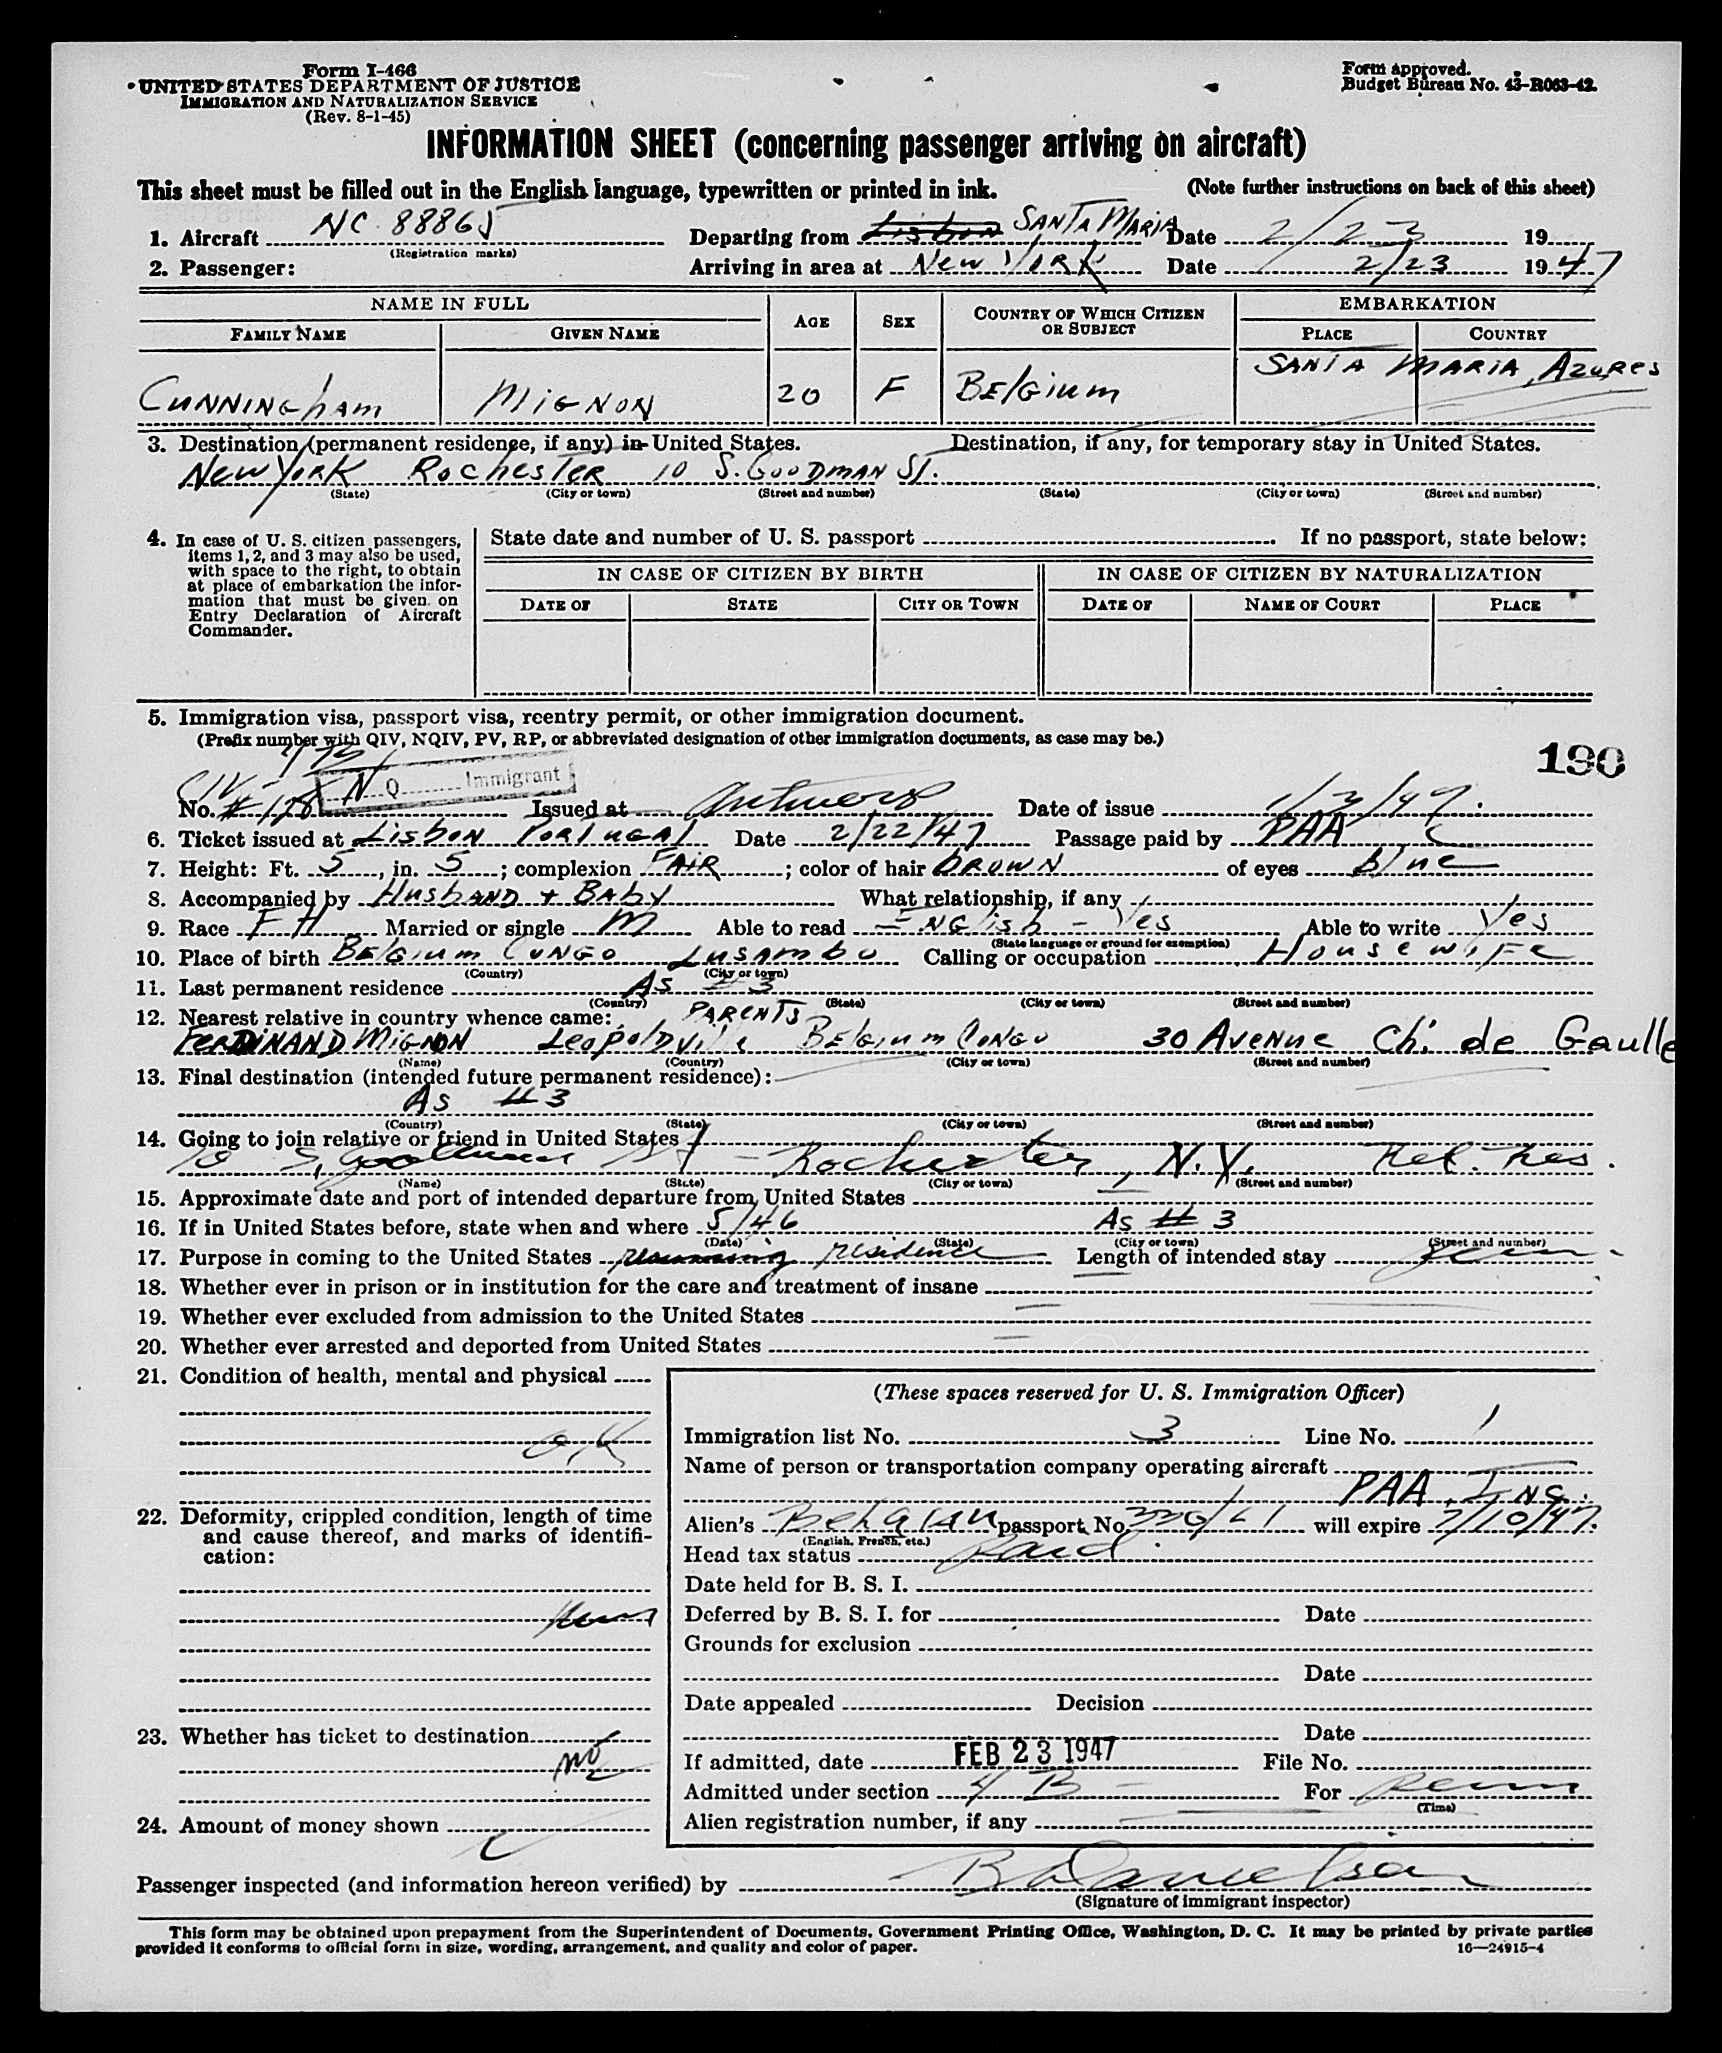 Form I-466
UNITED STATES DEPARTMENT OF JUSTICE
IMMIGRATION AND NATURALIZATION SERVICE
(Rev. 8-1-45)
Form approved.
Budget Bureau No. 43-R063-42.
INFORMATION SHEET (concerning passenger arriving on aircraft)
This sheet must be filled out in the English language, typewritten or printed in ink. (Note further instructions on back of this sheet)
1. Aircraft NC 88865 Departing from Lisbon SANTA MARIA Date 2/23 19
(Registration marks)
2. Passenger: Arriving in area at New YORK Date 2/23 1947
NAME IN FULL AGE SEX COUNTRY OF WHICH CITIZEN OR SUBJECT EMBARKATION
FAMILY NAME GIVEN NAME PLACE COUNTRY
CUNNINGhAM MIGNON 20 F BElGium SANTA MARIA, AZORES
3. Destination (permanent residence, if any) in United States. Destination, if any, for temporary stay in United States.
New YORK RochesTER 10 S. GOODMAN ST.
(State) (City or town) (Street and number) (State) (City or town) (Street and number)
4. In case of U. S. citizen passengers, items 1, 2, and 3 may also be used, with space to the right, to obtain at place of embarkation the information that must be given on Entry Declaration of Aircraft Commander.
State date and number of U. S. passport If no passport, state below:
IN CASE OF CITIZEN BY BIRTH IN CASE OF CITIZEN BY NATURALIZATION
DATE OF STATE CITY OR TOWN DATE OF NAME OF COURT PLACE
5. Immigration visa, passport visa, reentry permit, or other immigration document.
(Prefix number with QIV, NQIV, PV, RP, or abbreviated designation of other immigration documents, as case may be.)
190
N Q Immigrant
No. # 178 Issued at Antwerp Date of issue 1/3/47.
6. Ticket issued at Lisbon PORTUGAl Date 2/22/47 Passage paid by PAA
7. Height: Ft. 5, in. 5; complexion FAIR; color of hair brown of eyes blue
8. Accompanied by HusbAND + BABY What relationship, if any
9. Race FH Married or single M Able to read ENGlish - Yes Able to write Yes
(State language or ground for exemption)
10. Place of birth BElGium CONGO LUSAMbO Calling or occupation HousewiFe
(Country) (City or town)
11. Last permanent residence As # 3
(Country) (State) (City or town) (Street and number)
12. Nearest relative in country whence came: PARENTS
FERDINAND MIGNON LeopoldVille BElGium CONGO 30 AVENUE Ch. de Gaulle
(Name) (Country) (City or town) (Street and number)
13. Final destination (intended future permanent residence):
As # 3
(Country) (State) (City or town) (Street and number)
14. Going to join relative or friend in United States
10 S, Goodman St - Rochester, N.Y.
(Name) (State) (City or town) (Street and number)
15. Approximate date and port of intended departure from United States
16. If in United States before, state when and where 5/46 As # 3
(Date) (State) (City or town) (Street and number)
17. Purpose in coming to the United States resuming residence Length of intended stay perm.
18. Whether ever in prison or in institution for the care and treatment of insane
19. Whether ever excluded from admission to the United States
20. Whether ever arrested and deported from United States
21. Condition of health, mental and physical
O.K
22. Deformity, crippled condition, length of time and cause thereof, and marks of identification:
23. Whether has ticket to destination
24. Amount of money shown
(These spaces reserved for U. S. Immigration Officer)
Immigration list No. 3 Line No. 1
Name of person or transportation company operating aircraft
PAA, INC.
Alien's Belgian passport No. will expire 7/10/47.
(English, French, etc.)
Head tax status Paid.
Date held for B. S. I.
Deferred by B. S. I. for Date
Grounds for exclusion
Date
Date appealed Decision
Date
If admitted, date FEB 23 1947 File No.
Admitted under section 4 B - For perm
(Time)
Alien registration number, if any
Passenger inspected (and information hereon verified) by B Danielson
(Signature of immigrant inspector)
This form may be obtained upon prepayment from the Superintendent of Documents, Government Printing Office, Washington, D. C. It may be printed by private parties
provided it conforms to official form in size, wording, arrangement, and quality and color of paper. 16—24915-4